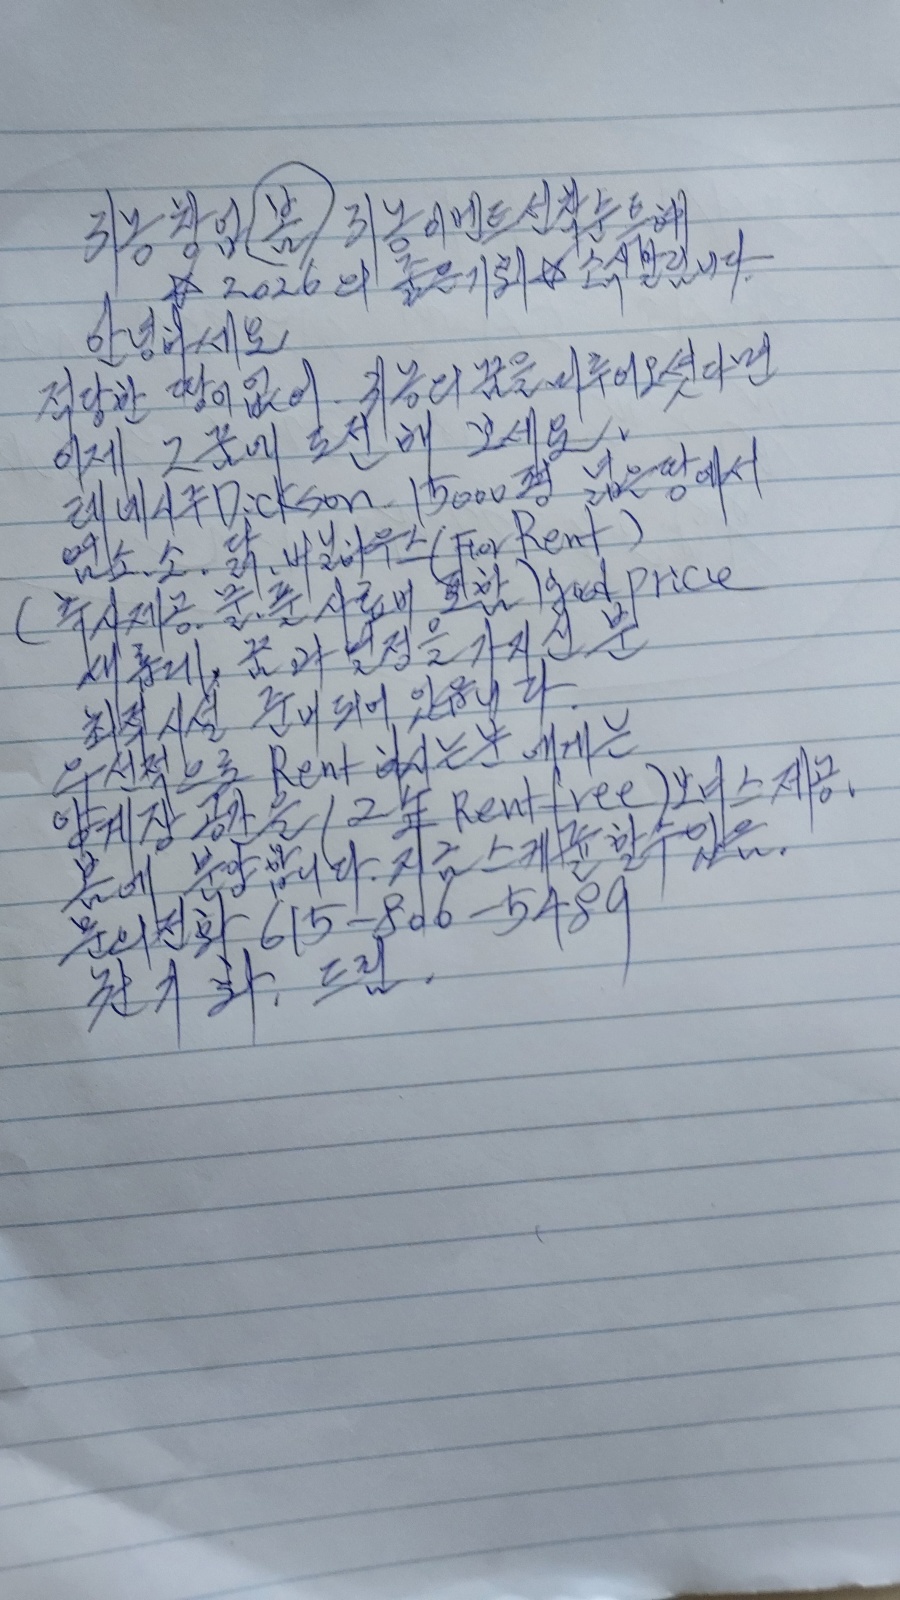 귀농 창업 봄 귀농이벤트 선착순 통해
☆ 2026의 좋은기회☆ 소식 발립니다.
안녕하세요
적당한 땅이 없어. 귀농의 꿈을 미루어오셧다면
이제 그 꿈에 도전해 보세요.
테네시주 Dickson. 15000평 넓은 땅에서
염소. 소. 닭. 비닐하우스 (For Rent)
(축사제공. 물. 풀 사료비 포함) good price
새롭게, 꿈과 열정을 가지신 분
최적시설 준비되어 있읍니다.
우선적으로 Rent 하시는분 에게는
양계장 공간을 (2年 Rent free) 보너스 제공.
봄에 분양합니다. 지금 스케쥴 할수 있음.
문의전화 615-806-5489
드림.